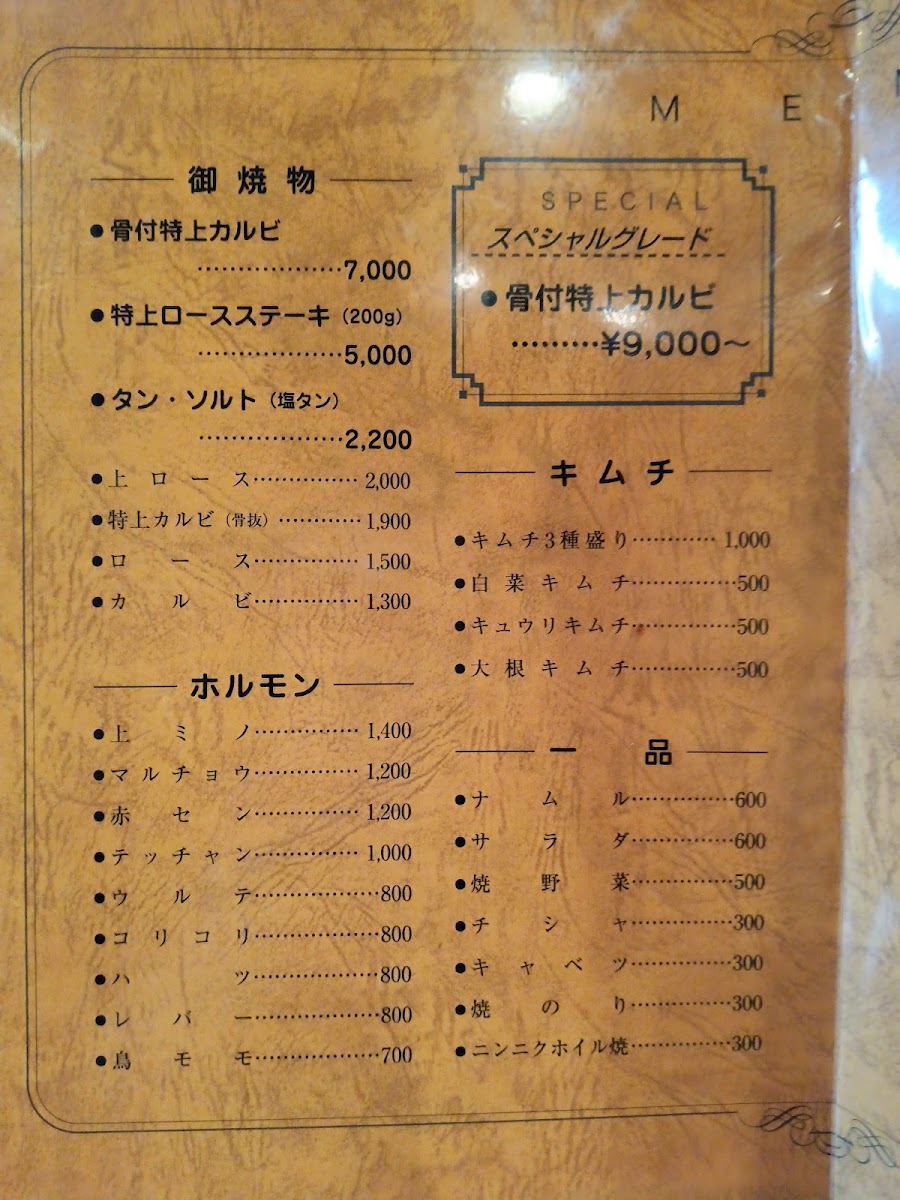 M E
御焼物
●骨付特上カルビ
………………7,000
●特上ロースステーキ（200g）
………………5,000
●タン・ソルト（塩タン）
………………2,200
●上ロース……………2,000
●特上カルビ（骨抜）…………1,900
●ロース……………1,500
●カルビ……………1,300
ホルモン
●上ミノ……………1,400
●マルチョウ……………1,200
●赤セン……………1,200
●テッチャン……………1,000
●ウルテ………………800
●コリコリ………………800
●ハツ………………800
●レバー………………800
●鳥モモ………………700
SPECIAL
スペシャルグレード
●骨付特上カルビ
………¥9,000～
キムチ
●キムチ3種盛り…………1,000
●白菜キムチ……………500
●キュウリキムチ……………500
●大根キムチ……………500
一品
●ナムル……………600
●サラダ……………600
●焼野菜……………500
●チシャ……………300
●キャベツ……………300
●焼のり……………300
●ニンニクホイル焼……………300